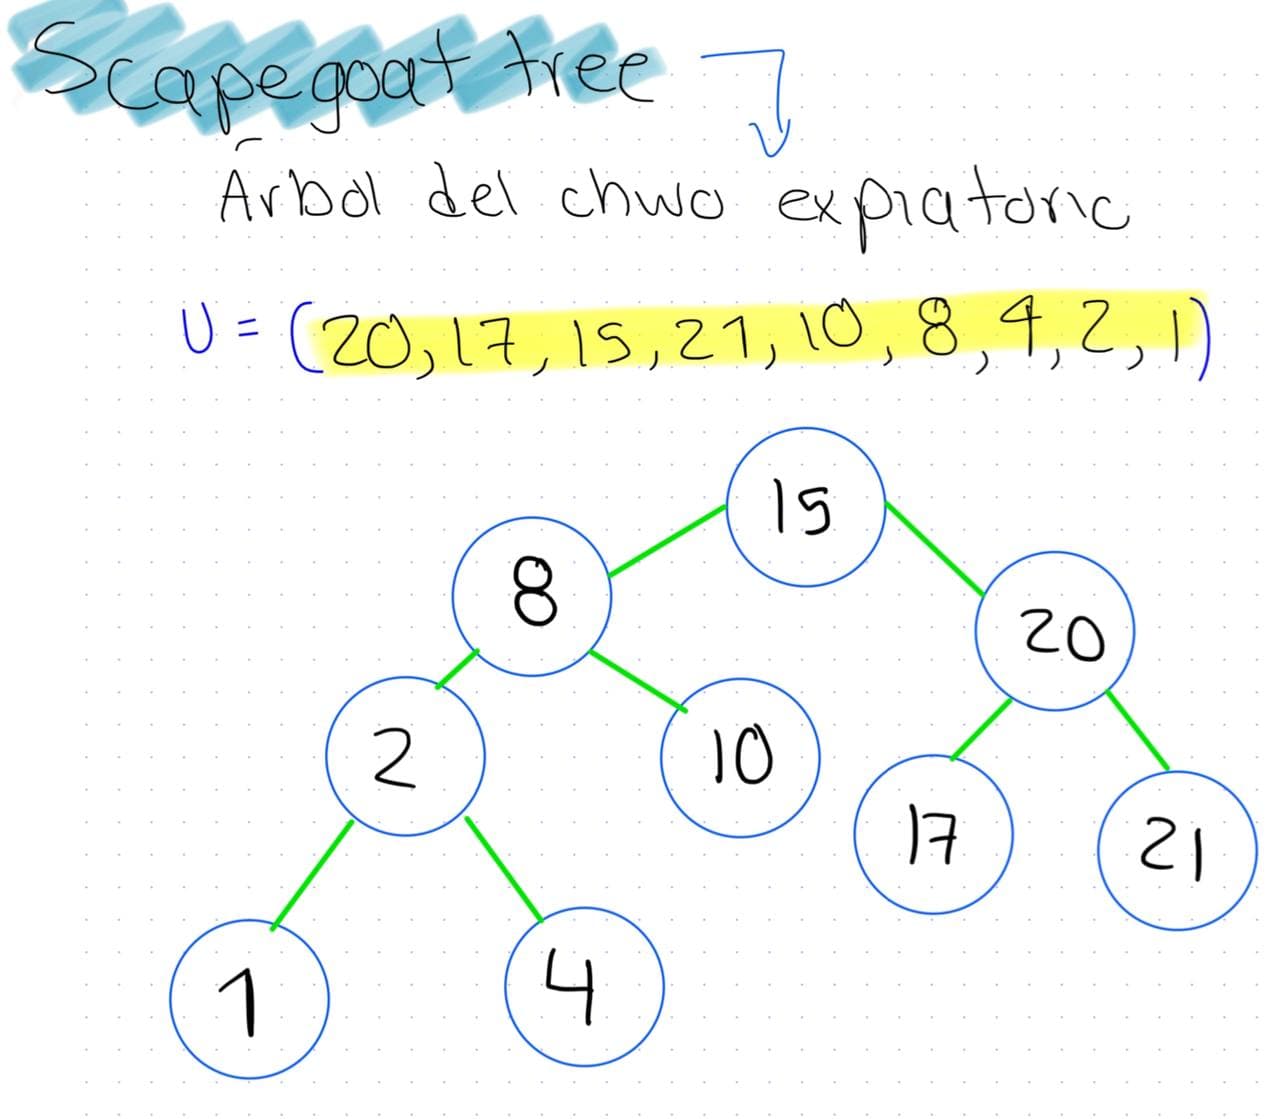 Scapegoat tree
Árbol del chivo expiatorio
U = (20, 17, 15, 21, 10, 8, 4, 2, 1)
15
8
20
2
10
17
21
1
4